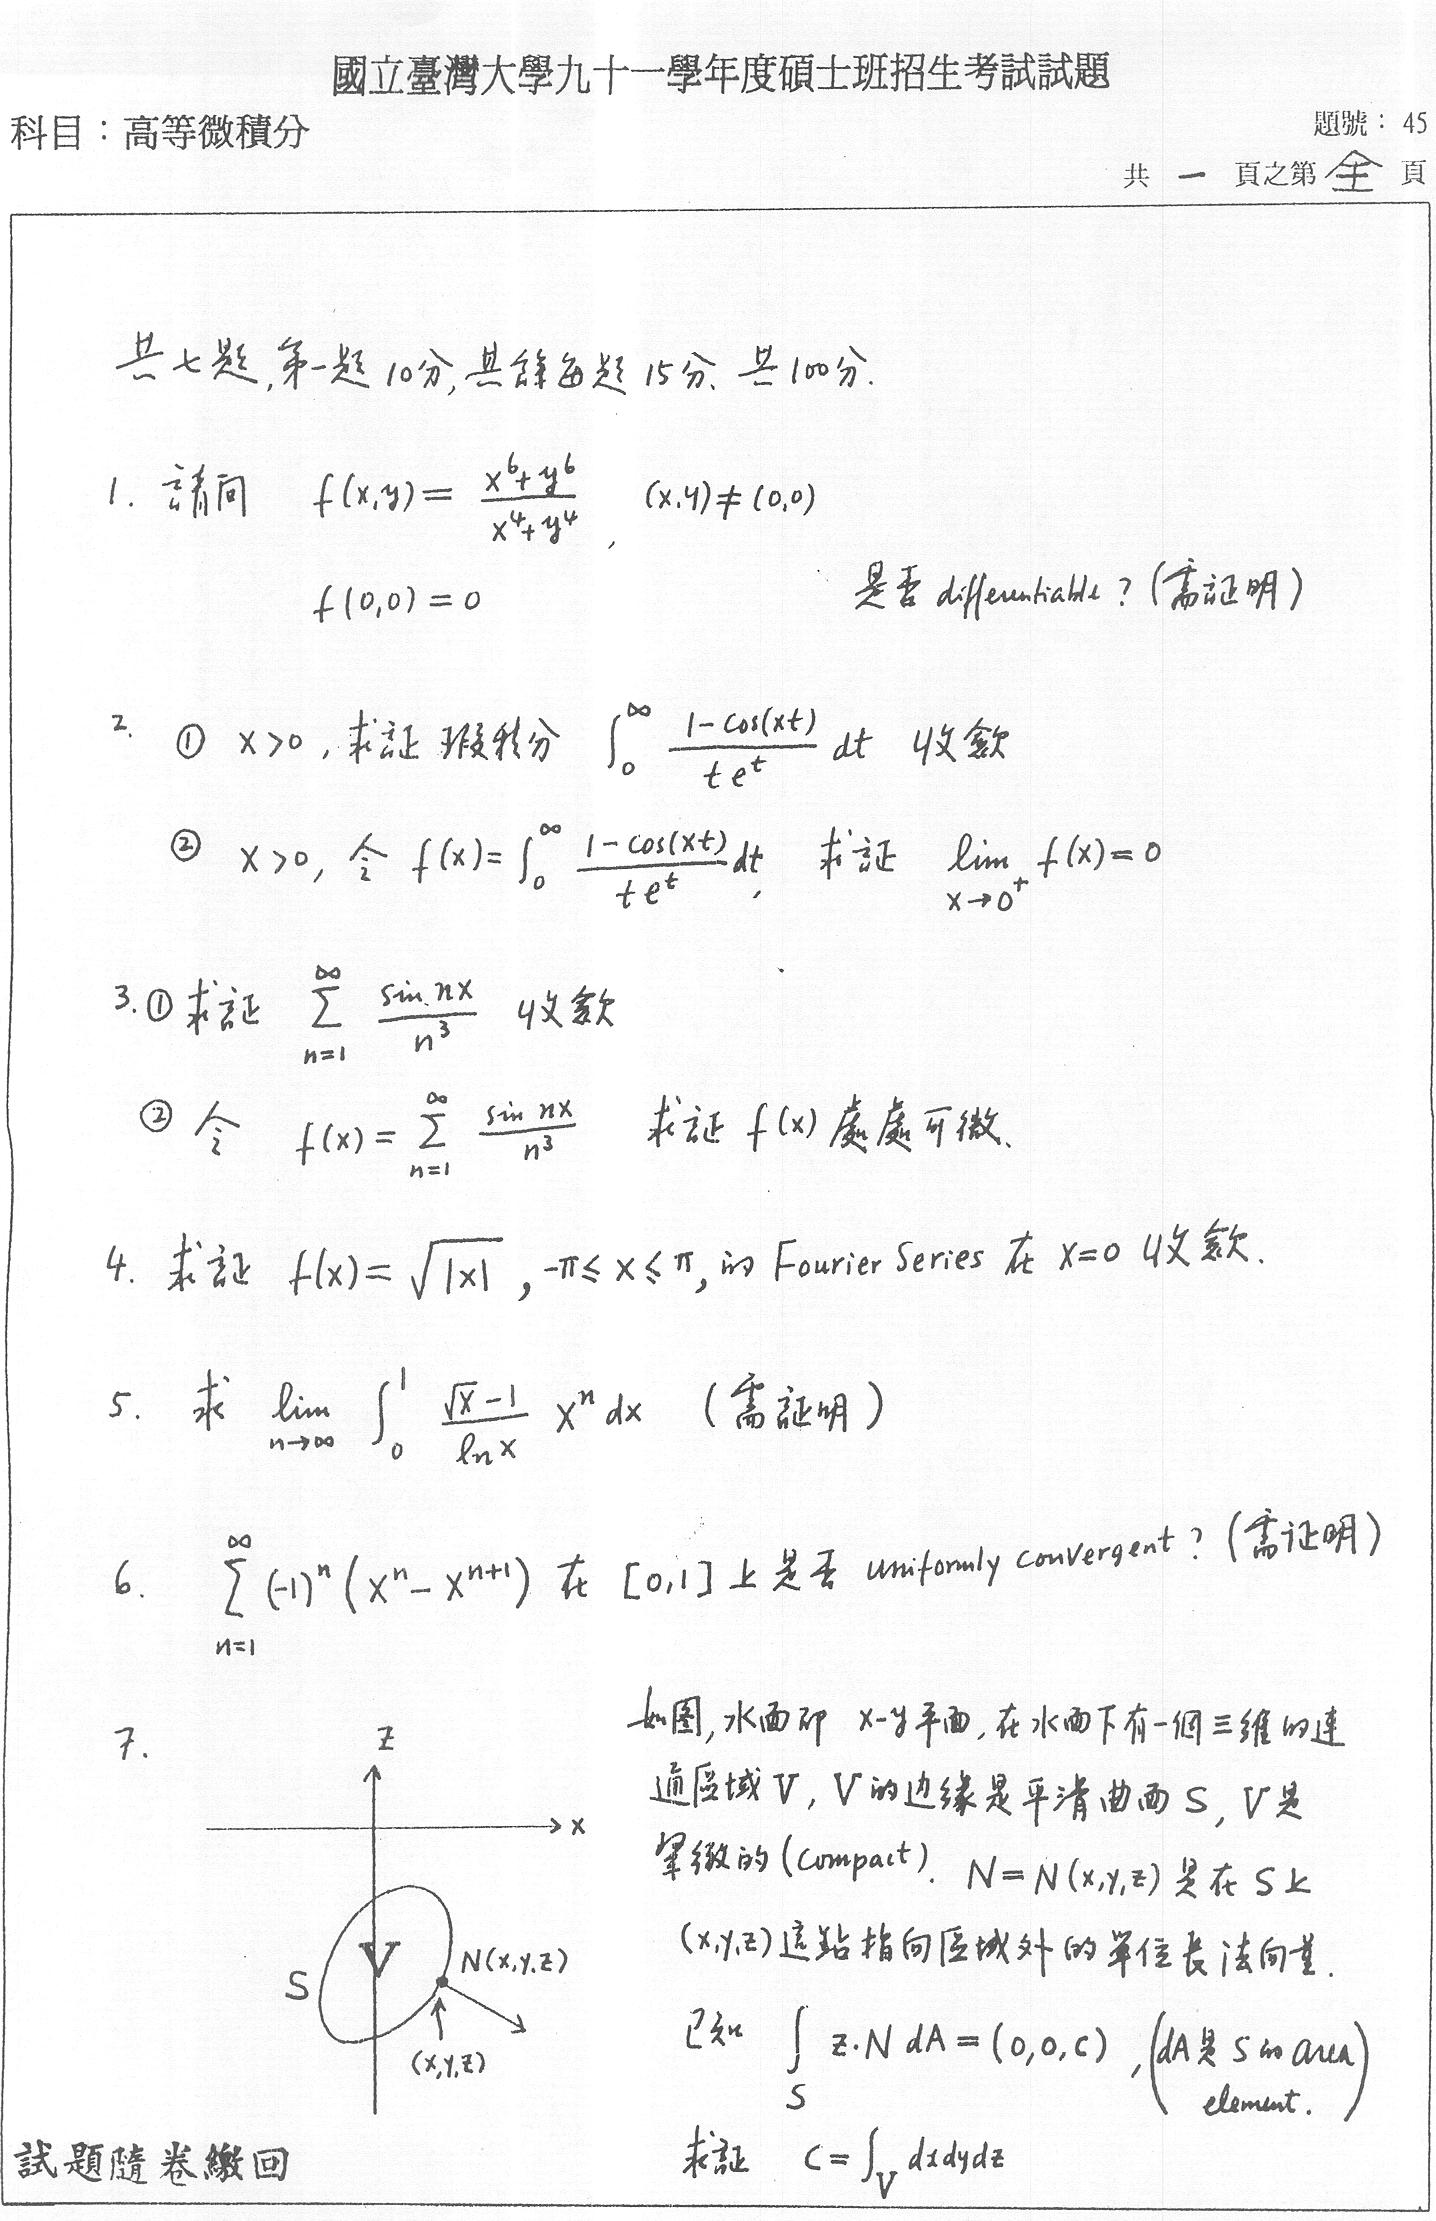 國立臺灣大學九十一學年度碩士班招生考試試題
科目：高等微積分
題號： 45
共 一 頁之第 全 頁
共七題,第一題10分,其餘每題15分、共100分.
1. 請問 f(x,y) = \frac{x^6+y^6}{x^4+y^4}, (x,y) ≠ (0,0)
f(0,0) = 0
是否 differentiable? (需証明)
2. ① x>0, 求証 瑕積分 \int_0^∞ \frac{1-cos(xt)}{t e^t} dt 收歛
② x>0, 令 f(x) = \int_0^∞ \frac{1-cos(xt)}{t e^t} dt, 求証 \lim_{x→0^+} f(x) = 0
3. ① 求証 \sum_{n=1}^∞ \frac{sin nx}{n^3} 收歛
② 令 f(x) = \sum_{n=1}^∞ \frac{sin nx}{n^3} 求証 f(x) 處處可微、
4. 求証 f(x) = \sqrt{|x|}, -π ≤ x ≤ π, 的 Fourier Series 在 x=0 收歛.
5. 求 \lim_{n→∞} \int_0^1 \frac{\sqrt{x}-1}{ln x} x^n dx (需証明)
6. \sum_{n=1}^∞ (-1)^n (x^n - x^{n+1}) 在 [0,1] 上是否 uniformly convergent? (需証明)
7.
如图, 水面即 x-y平面, 在水面下有一個三維的連
通區域 V, V的边缘是平滑曲面 S, V是
緊緻的 (compact). N = N(x,y,z) 是在 S上
(x,y,z) 這點指向區域外的單位長法向量.
已知 \int_S z·N dA = (0,0,C), (dA是 S的 area
element.)
求証 C = \int_V dxdydz
z
x
V
S
N(x,y,z)
(x,y,z)
試題隨卷繳回